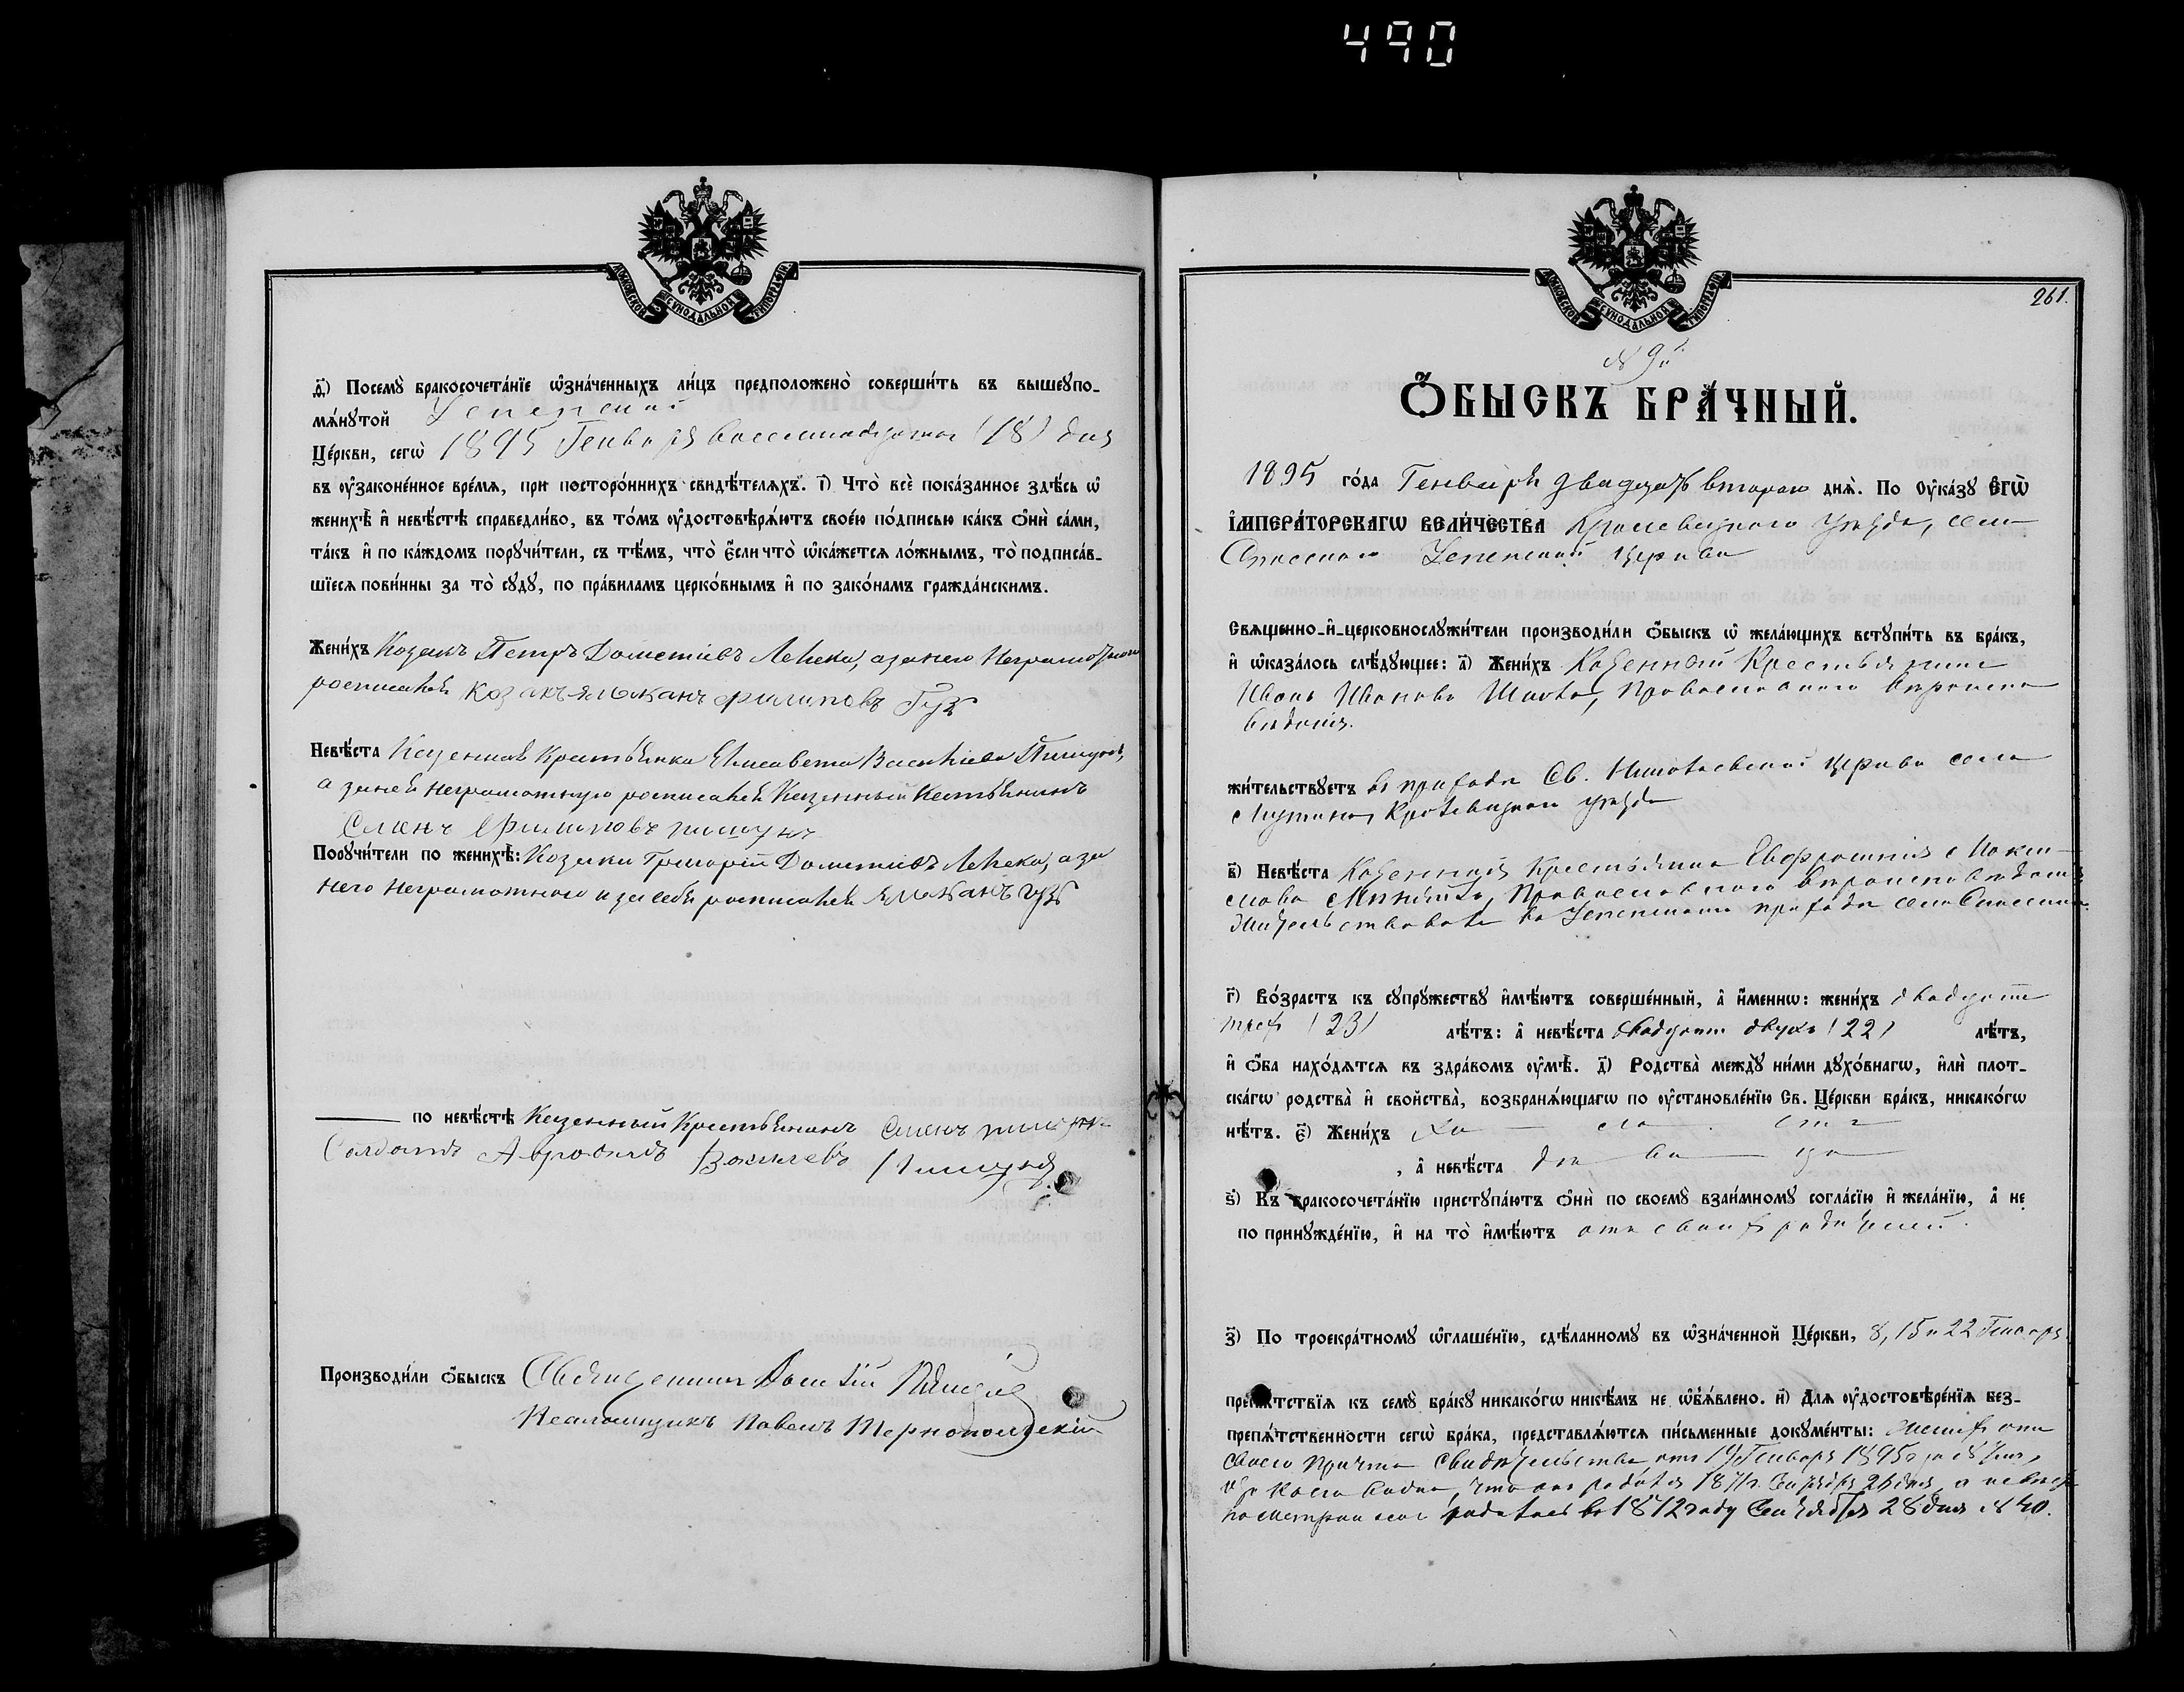 490
МОСКОВСКОЙ СѴНОДАЛЬНОЙ ТИПОГРАФІИ
д҃) Посемꙋ̀ бракосочета́нїе ѡ҆зна́ченныхъ ли́цъ предположено̀ соверши́ть въ вышеꙋпо-
мѧ́нꙋтой Успенской
Це́ркви, сегѡ̀ 1895 Генваря восемнадцатаго (18) дня
въ ᲂу҆законе́нное вре́мѧ, при посторо́ннихъ свидѣ́телѧхъ. і҃) Что̀ всѐ пока́занное здѣ́сь ѡ҆
женихѣ̀ и҆ невѣ́стѣ справедли́во, въ то́мъ ᲂу҆достовѣрѧ́ютъ свое́ю по́дписью ка́къ ѻ҆нѝ са́ми,
та́къ и҆ по ка́ждомъ порꙋчи́тели, съ тѣ́мъ, что̀ є҆́сли что̀ ѡ҆ка́жетсѧ ло́жнымъ, то̀ подписа́в-
шїесѧ пови́нны за то̀ сꙋдꙋ, по пра́виламъ церко́внымъ и҆ по зако́намъ гражда́нскимъ.
Жени́хъ Козакъ Петръ Дометіевъ Лепеха, а за него Неграмотного
росписался Козакъ Ямжанъ Филиповъ Гузъ
Невѣ́ста Казенная Крестьянка Елисавета Васильева Пишунъ,
а за ней неграмотную росписался Казенный Кестьянинъ
Семенъ Филиповъ пишунъ
Порꙋчи́тели по женихѣ̀: Козаки Григорій Дометіевъ Лепеха, а за
него неграмотного и за себя росписался Гузъ
по невѣ́стѣ Казенный Крестьянинъ Семенъ пишунъ
Солдатъ Василевъ Пишунъ
Производи́ли ѻ҆́быскъ Священникъ
Псаломщикъ Павелъ Тернопольскій
МОСКОВСКОЙ СѴНОДАЛЬНОЙ ТИПОГРАФІИ
261.
№ 9й
Ѻ҆БЫСКЪ БРА́ЧНЫЙ.
1895 го́да Генваря двадцать втораго днѧ̀. По ᲂу҆ка́зꙋ Є҆ГѠ̀
І҆МПЕРА́ТОРСКАГѠ ВЕЛИ́ЧЕСТВА Кролевецкого уезда, села
Спасского Успенской церкви
Свѧщенно-и҆-церковнослꙋжи́тели производи́ли ѻ҆́быскъ ѡ҆ жела́ющихъ встꙋпи́ть въ бра́къ,
и҆ ѡ҆каза́лось слѣ́дꙋющее: а҃) Жени́хъ Казенный Крестьянинъ
Иванъ Ивановъ Православного вероиспо
ведания.
жи́тельствꙋетъ въ приходе Св. Николаевской церкви села
Мутина, Кролевецкого уезда
в҃) Невѣ́ста Казенная Крестьянка Евфросиния Макси
мова Православного вероисповедания
жительствовала въ Успенскомъ приходе села Спасского.
г҃) Во́зрастъ къ сꙋпрꙋ́жествꙋ и҆мѣ́ютъ соверше́нный, а҆ и҆́меннѡ: жени́хъ двадцати
трехъ (23) лѣ́тъ: а҆ невѣ́ста двадцати двухъ (22) лѣ́тъ,
и҆ ѻ҆́ба нахо́дѧтсѧ въ здра́вомъ ᲂу҆мѣ̀. д҃) Родства̀ междꙋ̀ ни́ми дꙋхо́внагѡ, и҆лѝ плот-
ска́гѡ родства̀ и҆ сво́йства̀, возбранѧ́ющагѡ по ᲂу҆становле́нїю Св. Це́ркви бра́къ, никако́гѡ
нѣ́тъ. є҃) Жени́хъ хо — ло — стъ
, а҆ невѣ́ста де — ви — ца
ѕ҃) Къ бракосочета́нїю пристꙋпа́ютъ ѻ҆нѝ по своемꙋ̀ взаи́мномꙋ согла́сїю и҆ жела́нїю, а҆ не
по принꙋжде́нїю, и҆ на то̀ и҆мѣ́ютъ отъ своихъ родителей.
з҃) По троекра́тномꙋ ѡ҆глаше́нїю, сдѣ́ланномꙋ въ ѡ҆зна́ченной Це́ркви, 8, 15 и 22 Генваря
препѧ́тствїѧ къ семꙋ̀ бра́кꙋ никако́гѡ никѣ́мъ не ѡ҆б̾ѧ́влено. и҃) Длѧ ᲂу҆достовѣре́нїѧ без-
препѧ́тственности сегѡ̀ бра́ка, представлѧ́ютсѧ пи́сьменные докꙋме́нты: Женихъ отъ
своего причта свидетельство отъ 19 Генваря 1895 г за №
изъ коего видно, что онъ родился 1871 г. Сентября 26 дня, а невеста
по метрикамъ родилась въ 1872 году Сентября 28 дня № 40.